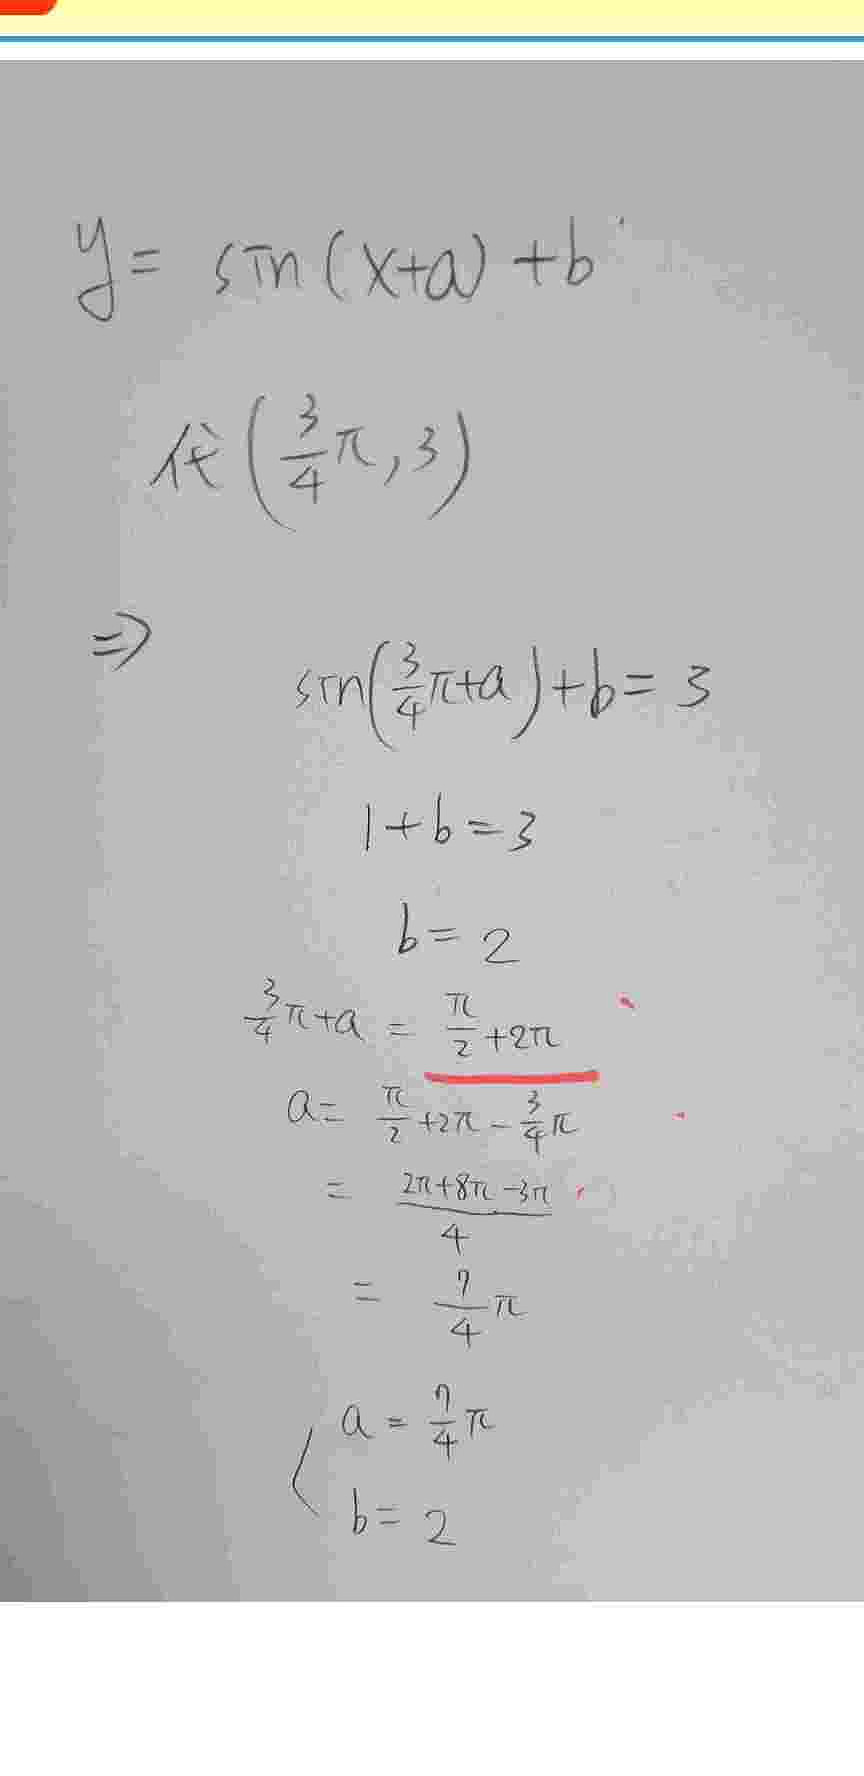 y = sin(x+a)+b
代(3/4 π, 3)
⇒ sin(3/4 π+a)+b = 3
1+b=3
b= 2
3/4 π+a = π/2 +2π
a= π/2 +2π - 3/4 π
= (2π+8π-3π)/4
= 7/4 π
a = 7/4 π
b= 2